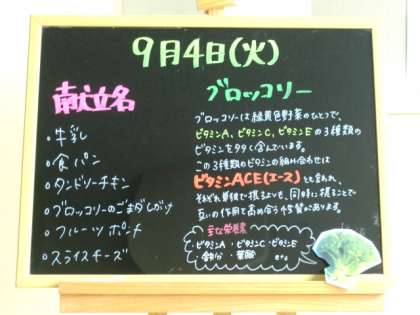 9月4日(火)
献立名
・牛乳
・食パン
・タンドリーチキン
・ブロッコリーのごまダレがけ
・フルーツポンチ
・スライスチーズ
ブロッコリー
ブロッコリーは緑黄色野菜のひとつで、
ビタミンA、ビタミンC、ビタミンEの3種類の
ビタミンを多く含んでいます。
この3種類のビタミンの組み合わせは
ビタミンACE(エース)とも言われ、
それぞれ単独で摂るよりも、同時に摂ることで
互いの作用を高め合う性質があります。
主な栄養素
・ビタミンA ・ビタミンC ・ビタミンE
・鉄分 ・葉酸 etc